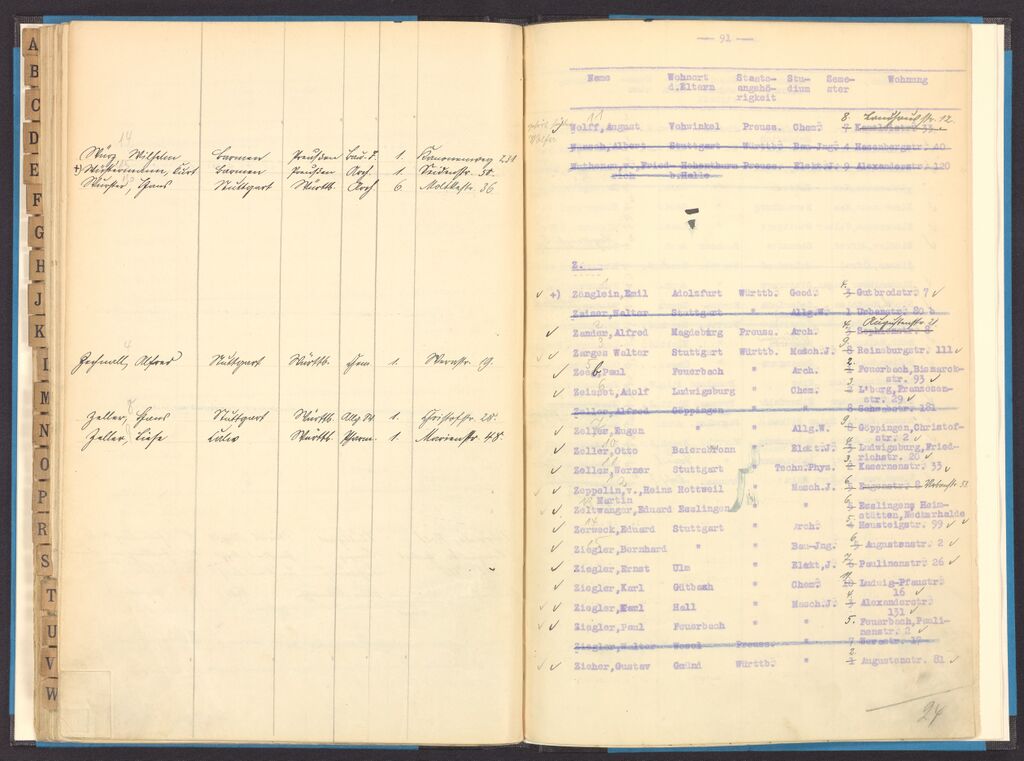 A
B
C
D
E
F
G
H
J
K
L
M
N
O
P
R
S
T
U
V
W
14
Wilhelm Barmen Preußen 1. Kanonenweg 231
+) Wustermann, Curt Barmen Preußen Arch. 1. Seidenstr. 38.
Wurster, Hans Stuttgart Württb. Arch 6. Moltkestr. 36
4
Alfred Stuttgart Württb. Chem. 1. Wernstr. 19.
8
Zeller, Hans Stuttgart Württb. Allg. W. 1. Christofstr. 28.
Zeller, Liese Calw Württb. Pharm. 1. Marienstr. 48.
— 91 —
Name Wohnort d.Eltern Staats-angehö-rigkeit Stu-dium Seme-ster Wohnung
11 8. Landhausstr. 12.
Wolff, August Vohwinkel Preuss. Chem. 7
Wunsch, Albert Stuttgart Württb. Bau-Jng. 4 Hasenbergstr. 40
Wuthenau, v., Fried- Hohenthurm Preuss. Elekt.J. 9 Alexanderstr. 120
rich b.Halle
Z.
4.
+) Zänglein, Emil Adolzfurt Württb. Geod. 3 Gutbrodstr. 7
Zaiser, Walter Stuttgart " Allg.W. 1 Urbanstr. 80 b
4 Augustenstr. 21
Zander, Alfred Magdeburg Preuss. Arch. 3 Sophienstr. 8
9.
Zarges Walter Stuttgart Württb. Masch.J. 8 Reinsburgstr. 111
2.
Paul Feuerbach " Arch. 1 Feuerbach, Bismarck-
str. 93
3
Zeisset, Adolf Ludwigsburg " Chem. 2 L'burg, Franzosen-
str. 29
Zeller, Alfred Göppingen " " 8 Schwabstr. 181
Zeller, Eugen " " Allg.W. 8 Göppingen, Christof-
str. 2
Zeller, Otto Baiersbronn " Elekt.J. 3 Ludwigsburg, Fried-
richstr. 20
Zeller, Werner Stuttgart " Techn.Phys. 2 Kasernenstr. 33
Zeppelin, v., Heinz Rottweil " Masch.J. Eugenstr. 8 Urbanstr. 53
Martin
Zeltwanger, Eduard Esslingen " " Esslingen, Heim-
stätten, Neckarhalde
Zerweck, Eduard Stuttgart " Arch. Heusteigstr. 99
Ziegler, Bernhard " " Bau-Jng. Augustenstr. 2
Ziegler, Ernst Ulm " Elekt.J. Paulinenstr. 26
Ziegler, Karl Gütbach " Chem. 10 Ludwig-Pfaustr.
16
Ziegler, Karl Hall " Masch.J. 3 Alexanderstr.
131
Ziegler, Paul Feuerbach " " 5. Feuerbach, Pauli-
nenstr. 2
Ziegler, Walter Wesel Preuss. " 7 Werastr. 17
2
Zieher, Gustav Gmünd Württb. " 1 Augustenstr. 81
24